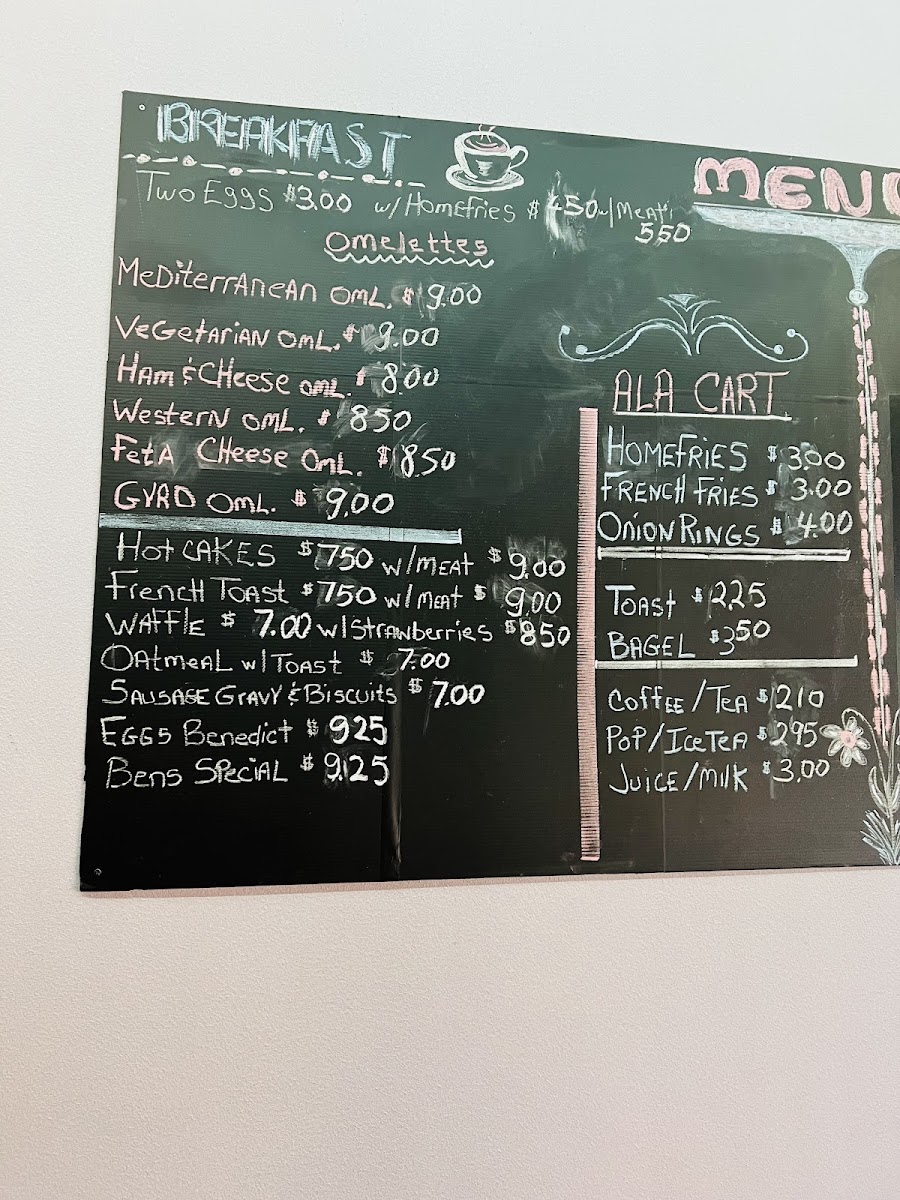 BREAKFAST
MENU
Two Eggs $3.00 w/Homefries $450 w/Meat
550
Omelettes
Mediterranean OML. $9.00
Vegetarian OML. $9.00
Ham & Cheese OML. $8.00
Western OML. $850
Feta Cheese OML. $8.50
GYRO OML. $9.00
Hot CAKES $750 w/MEAT $9.00
French Toast $750 w/MEAT $9.00
WAFFLE $7.00 w/Strawberries $850
Oatmeal w/Toast $7.00
Sausage Gravy & Biscuits $7.00
Eggs Benedict $925
Bens Special $9.25
ALA CART
HOMEFRIES $3.00
FRENCH FRIES $3.00
ONION RINGS $4.00
TOAST $2.25
BAGEL $350
Coffee/Tea $210
POP/ICE TEA $295
JUICE/MILK $3.00